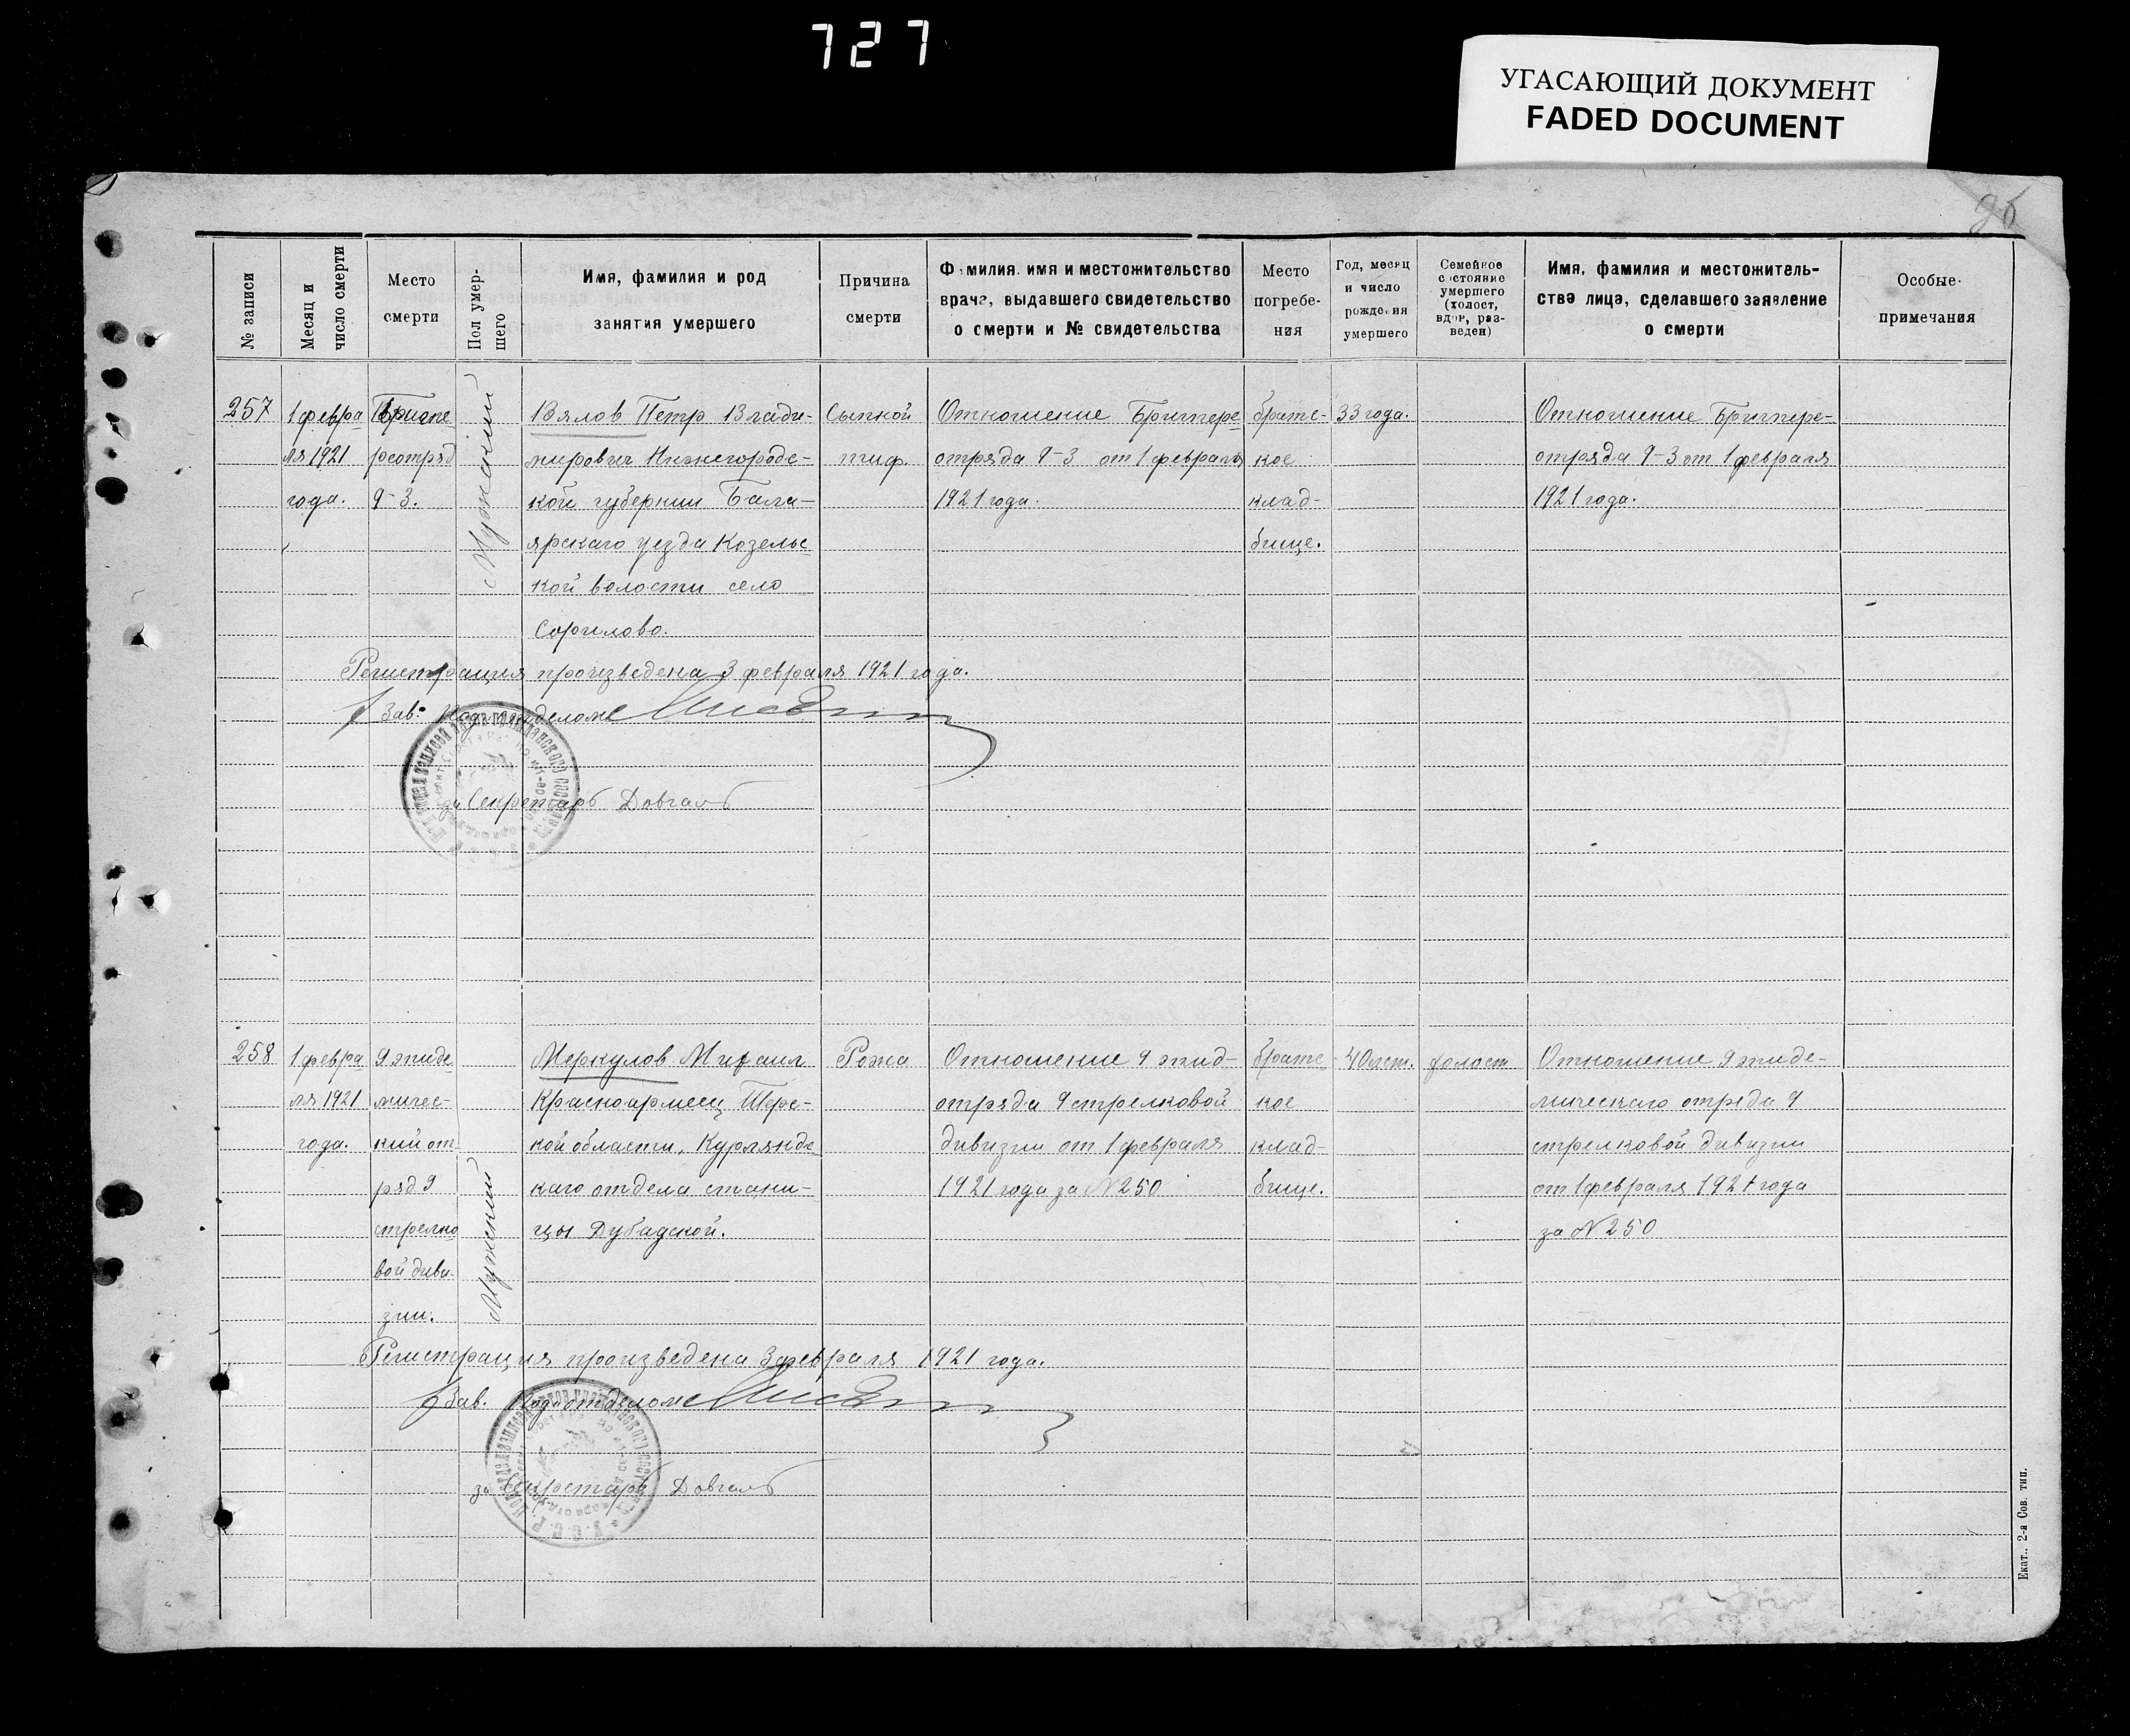 727
УГАСАЮЩИЙ ДОКУМЕНТ
FADED DOCUMENT
96
№ записи
Месяц и число смерти
Место смерти
Пол умершего
Имя, фамилия и род занятия умершего
Причина смерти
Фамилия, имя и местожительство врача, выдавшего свидетельство о смерти и № свидетельства
Место погребения
Год, месяц и число рождения умершего
Семейное состояние умершего (холост, вдов, разведен)
Имя, фамилия и местожительства лица, сделавшего заявление о смерти
Особые примечания
257
1 февра
ля 1921
года.
реотряд
9-3.
Мужский
Вялов Петр Влади-
мирович Нижегородс-
кой губернии Бала-
ярскаго уезда Козельс
кой волости село
Сыпной
тиф.
Отношение Бригпере
отряда 9-3 от 1 февраля
1921 года.
братс-
кое
клад-
бище.
33 года.
Отношение Бригпере-
отряда 9-3 от 1 февраля
1921 года.
Регистрация произведена 3 февраля 1921 года.
Зав. Подотделом
за Секретарь Довгаль
258
1 февра
ля 1921
года.
9 эпиде
мичес-
кий от
ряд 9
стрелко
вой диви-
зии.
Мужский
Меркулов Михаил
Красноармеец Терс-
кой области, Курляндс
каго отдела стани-
цы Дубадской.
Рожа
Отношение 9 эпид-
отряда 9 стрелковой
дивизии от 1 февраля
1921 года за N 250
братс-
кое
клад-
бище.
40 лет.
холост
Отношение 9 эпиде-
мическаго отряда 9
стрелковой дивизии
от 1 февраля 1921 года
за N 250
Регистрация произведена 3 февраля 1921 года.
Зав. Подотделом
за Секретарь Довгаль
Екат., 2-я Сов. тип.